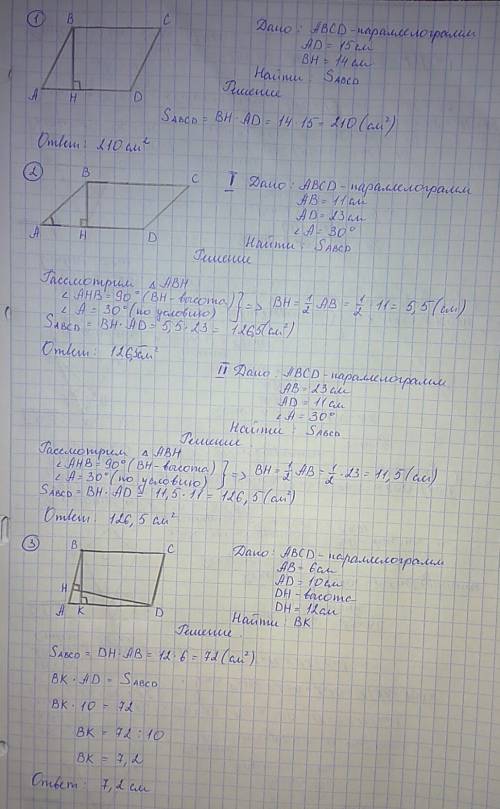 1
B C
A H D
Дано: ABCD - параллелограмм
AD = 15 см
BH = 14 см
Найти: SABCD
Решение
SABCD = BH · AD = 14 · 15 = 210 (см²)
Ответ: 210 см²
2
B C
A H D
I Дано: ABCD - параллелограмм
AB = 11 см
AD = 23 см
∠A = 30°
Найти: SABCD
Решение
Рассмотрим △ABH
∠AHB = 90° (BH - высота)
∠A = 30° (по условию) } => BH = 1/2 AB = 1/2 · 11 = 5,5 (см)
SABCD = BH · AD = 5,5 · 23 = 126,5 (см²)
Ответ: 126,5 см²
II Дано: ABCD - параллелограмм
AB = 23 см
AD = 11 см
∠A = 30°
Найти: SABCD
Решение
Рассмотрим △ABH
∠AHB = 90° (BH - высота)
∠A = 30° (по условию) } => BH = 1/2 AB = 1/2 · 23 = 11,5 (см)
SABCD = BH · AD = 11,5 · 11 = 126,5 (см²)
Ответ: 126,5 см²
3
B C
H
A K D
Дано: ABCD - параллелограмм
AB = 6 см
AD = 10 см
DH - высота
DH = 12 см
Найти: BK
Решение
SABCD = DH · AB = 12 · 6 = 72 (см²)
BK · AD = SABCD
BK · 10 = 72
BK = 72 : 10
BK = 7,2
Ответ: 7,2 см